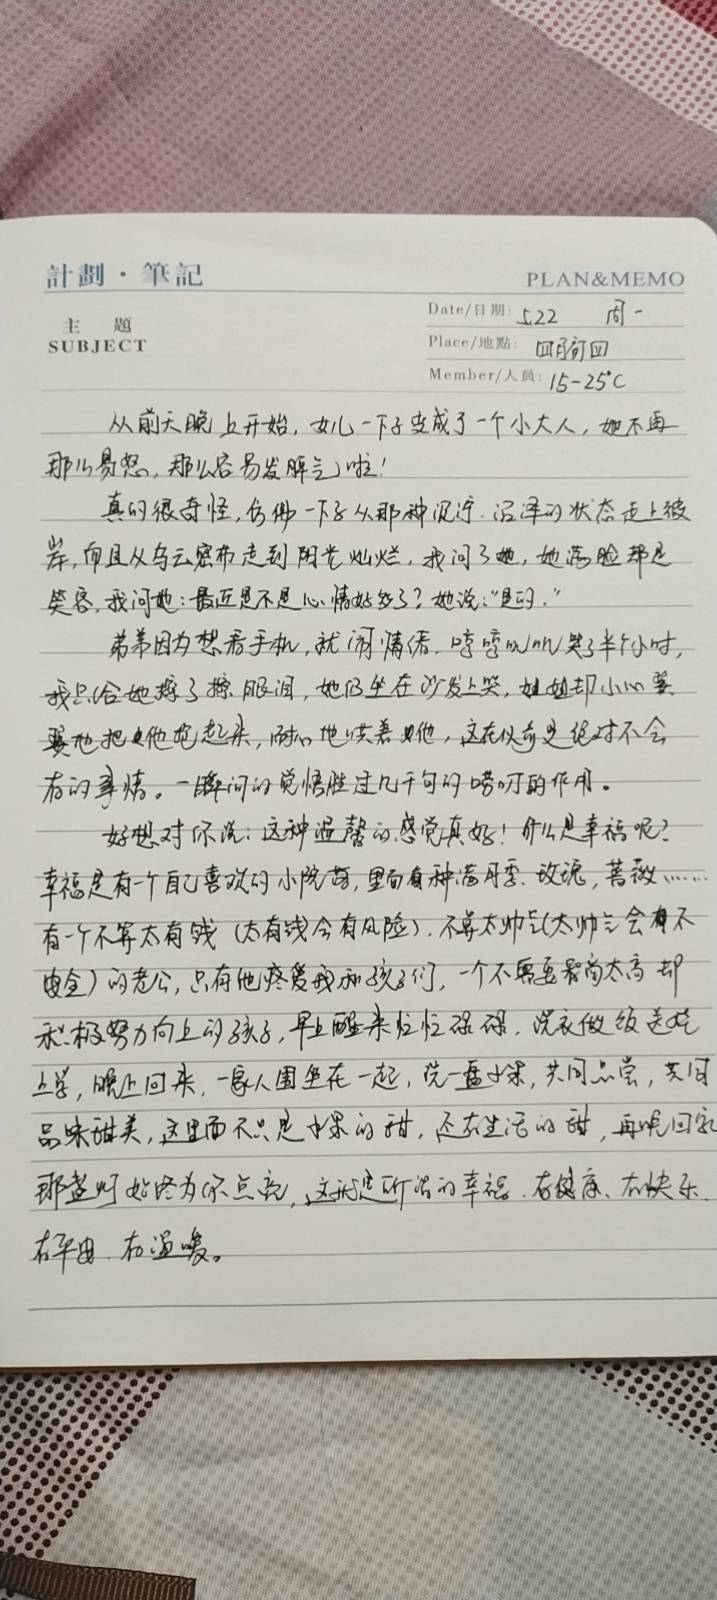 計劃·筆記
PLAN&MEMO
主題
SUBJECT
Date/日期: 5.22 周一
Place/地點: 四月初四
Member/人員: 15-25℃
从前天晚上开始,女儿一下子变成了一个小大人,她不再
那么易怒,那么容易发脾气啦!
真的很奇怪,仿佛一下子从那种沉浮.沼泽的状态走上彼
岸,而且从乌云密布走到阳光灿烂,我问了她,她满脸都是
笑容,我问她:最近是不是心情好多了?她说:"是的."
弟弟因为想看手机,就闹情绪.哼哼叽叽哭了半个小时,
我只给她擦了擦眼泪,她仍坐在沙发上哭,姐姐却小心翼
翼地把他抱起来,耐心地哄着他,这在以前是绝对不会
有的事情。一瞬间的觉悟胜过几千句的唠叨的作用。
好想对你说:这种温馨的感觉真好!什么是幸福呢?
幸福是有一个自己喜欢的小院落,里面有种满月季.玫瑰,蔷薇……
有一个不算太有钱(太有钱会有风险),不算太帅气(太帅气会有不
安全)的老公,只有他疼爱我和孩子们,一个不需要智商太高却
积极努力向上的孩子,早上醒来忙忙碌碌,洗衣做饭送娃
上学,晚上回来,一家人围坐在一起,洗一盘水果,共同品尝,共同
品味甜美,这里面不只是水果的甜,还有生活的甜,再晚回家
那盏灯始终为你点亮,这就是所谓的幸福.有健康、有快乐.
有平安.有温暖。